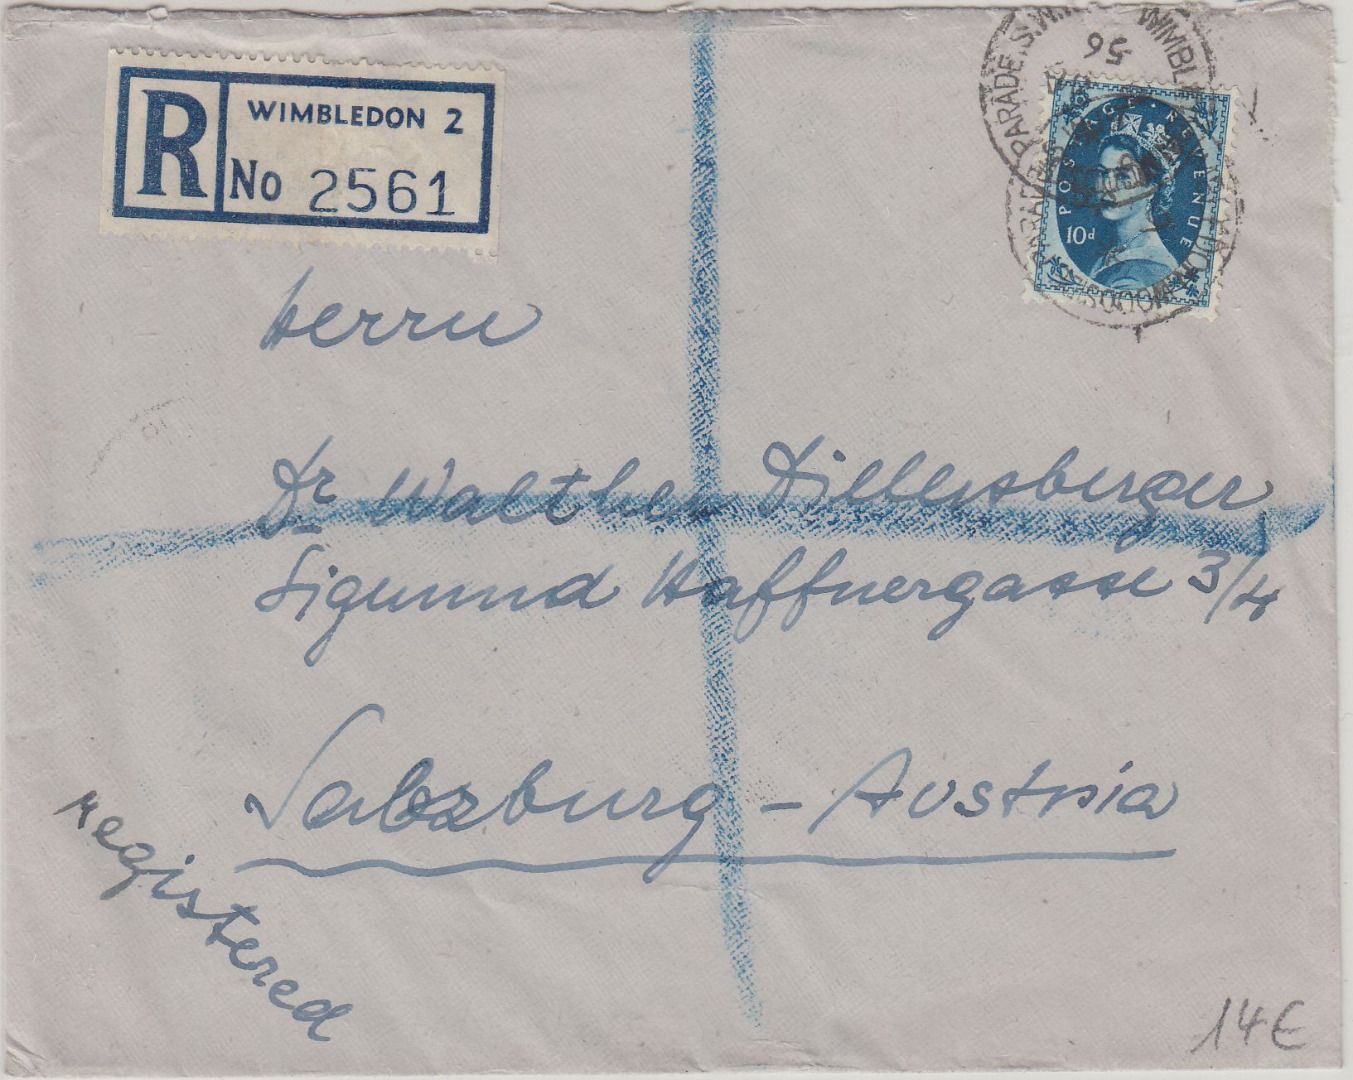 R
WIMBLEDON 2
No 2561
56
WIMBL
PARADE S.W.
POSTAGE REVENUE
10d
Herrn
Dr Walther Dillersberger
Sigmund Haffnergasse 3/4
Salzburg – Austria
registered
14€